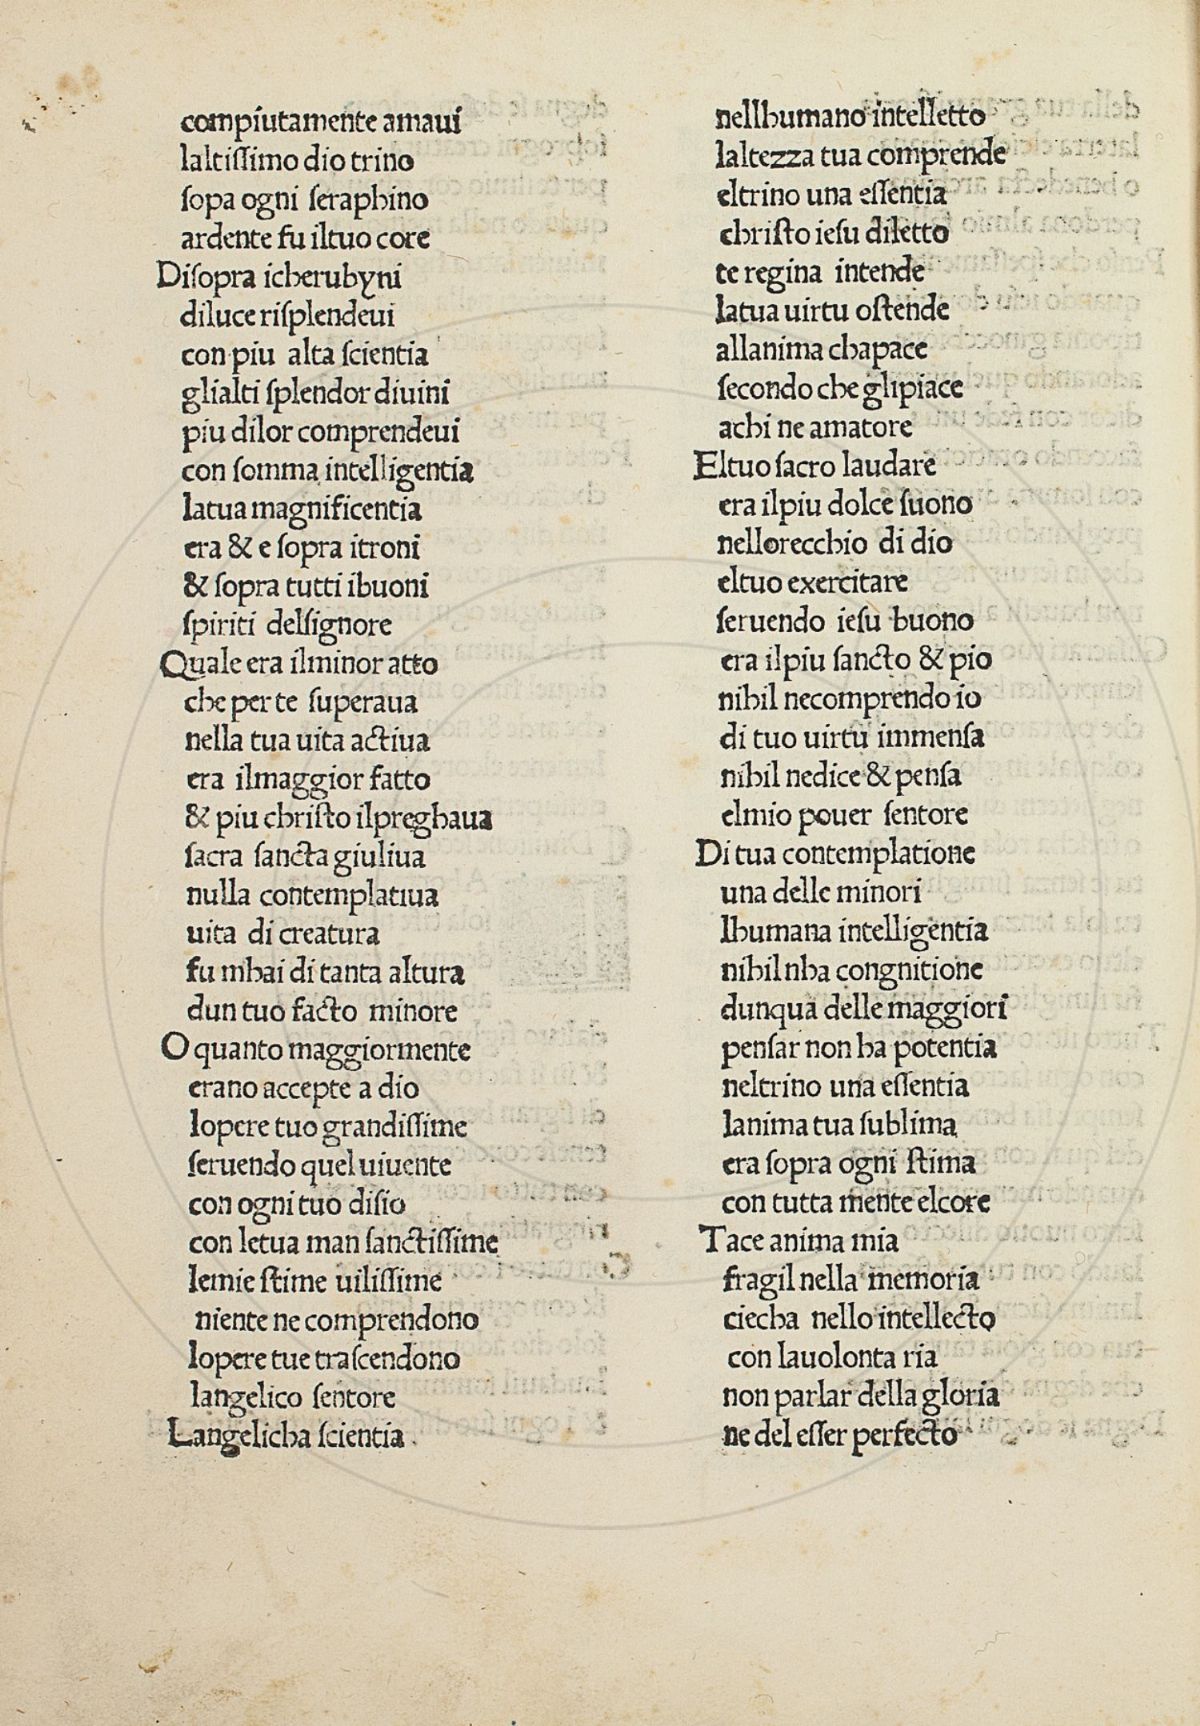 compiutamente amaui
laltiſſimo dio trino
ſopa ogni ſeraphino
ardente fu iltuo core
Diſopra icherubyni
diluce riſplendeui
con piu alta ſcientia
glialti ſplendor diuini
piu dilor comprendeui
con ſomma intelligentia
latua magnificentia
era & e ſopra itroni
& ſopra tutti ibuoni
ſpiriti delſignore
Quale era ilminor atto
che per te ſuperaua
nella tua uita actiua
era ilmaggior fatto
& piu chriſto ilpreghaua
ſacra ſancta giuliua
nulla contemplatiua
uita di creatura
fu mhai di tanta altura
dun tuo facto minore
O quanto maggiormente
erano accepte a dio
lopere tuo grandiſſime
ſeruendo quel uiuente
con ogni tuo diſio
con letua man ſanctiſſime
lemie ſtime uiliſſime
niente ne comprendono
lopere tue traſcendono
langelico ſentore
Langelicha ſcientia
nellhumano intelletto
laltezza tua comprende
eltrino una eſſentia
chriſto ieſu diletto
te regina intende
latua uirtu oſtende
allanima chapace
ſecondo che glipiace
achi ne amatore
Eltuo ſacro laudare
era ilpiu dolce ſuono
nellorecchio di dio
eltuo exercitare
ſeruendo ieſu buono
era ilpiu ſancto & pio
nihil necomprendo io
di tuo uirtu immenſa
nihil nedice & penſa
elmio pouer ſentore
Di tua contemplatione
una delle minori
lhumana intelligentia
nihil nha congnitione
dunqua delle maggiori
penſar non ha potentia
neltrino una eſſentia
lanima tua ſublima
era ſopra ogni ſtima
con tutta mente elcore
Tace anima mia
fragil nella memoria
ciecha nello intellecto
con lauolonta ria
non parlar della gloria
ne del eſſer perfecto